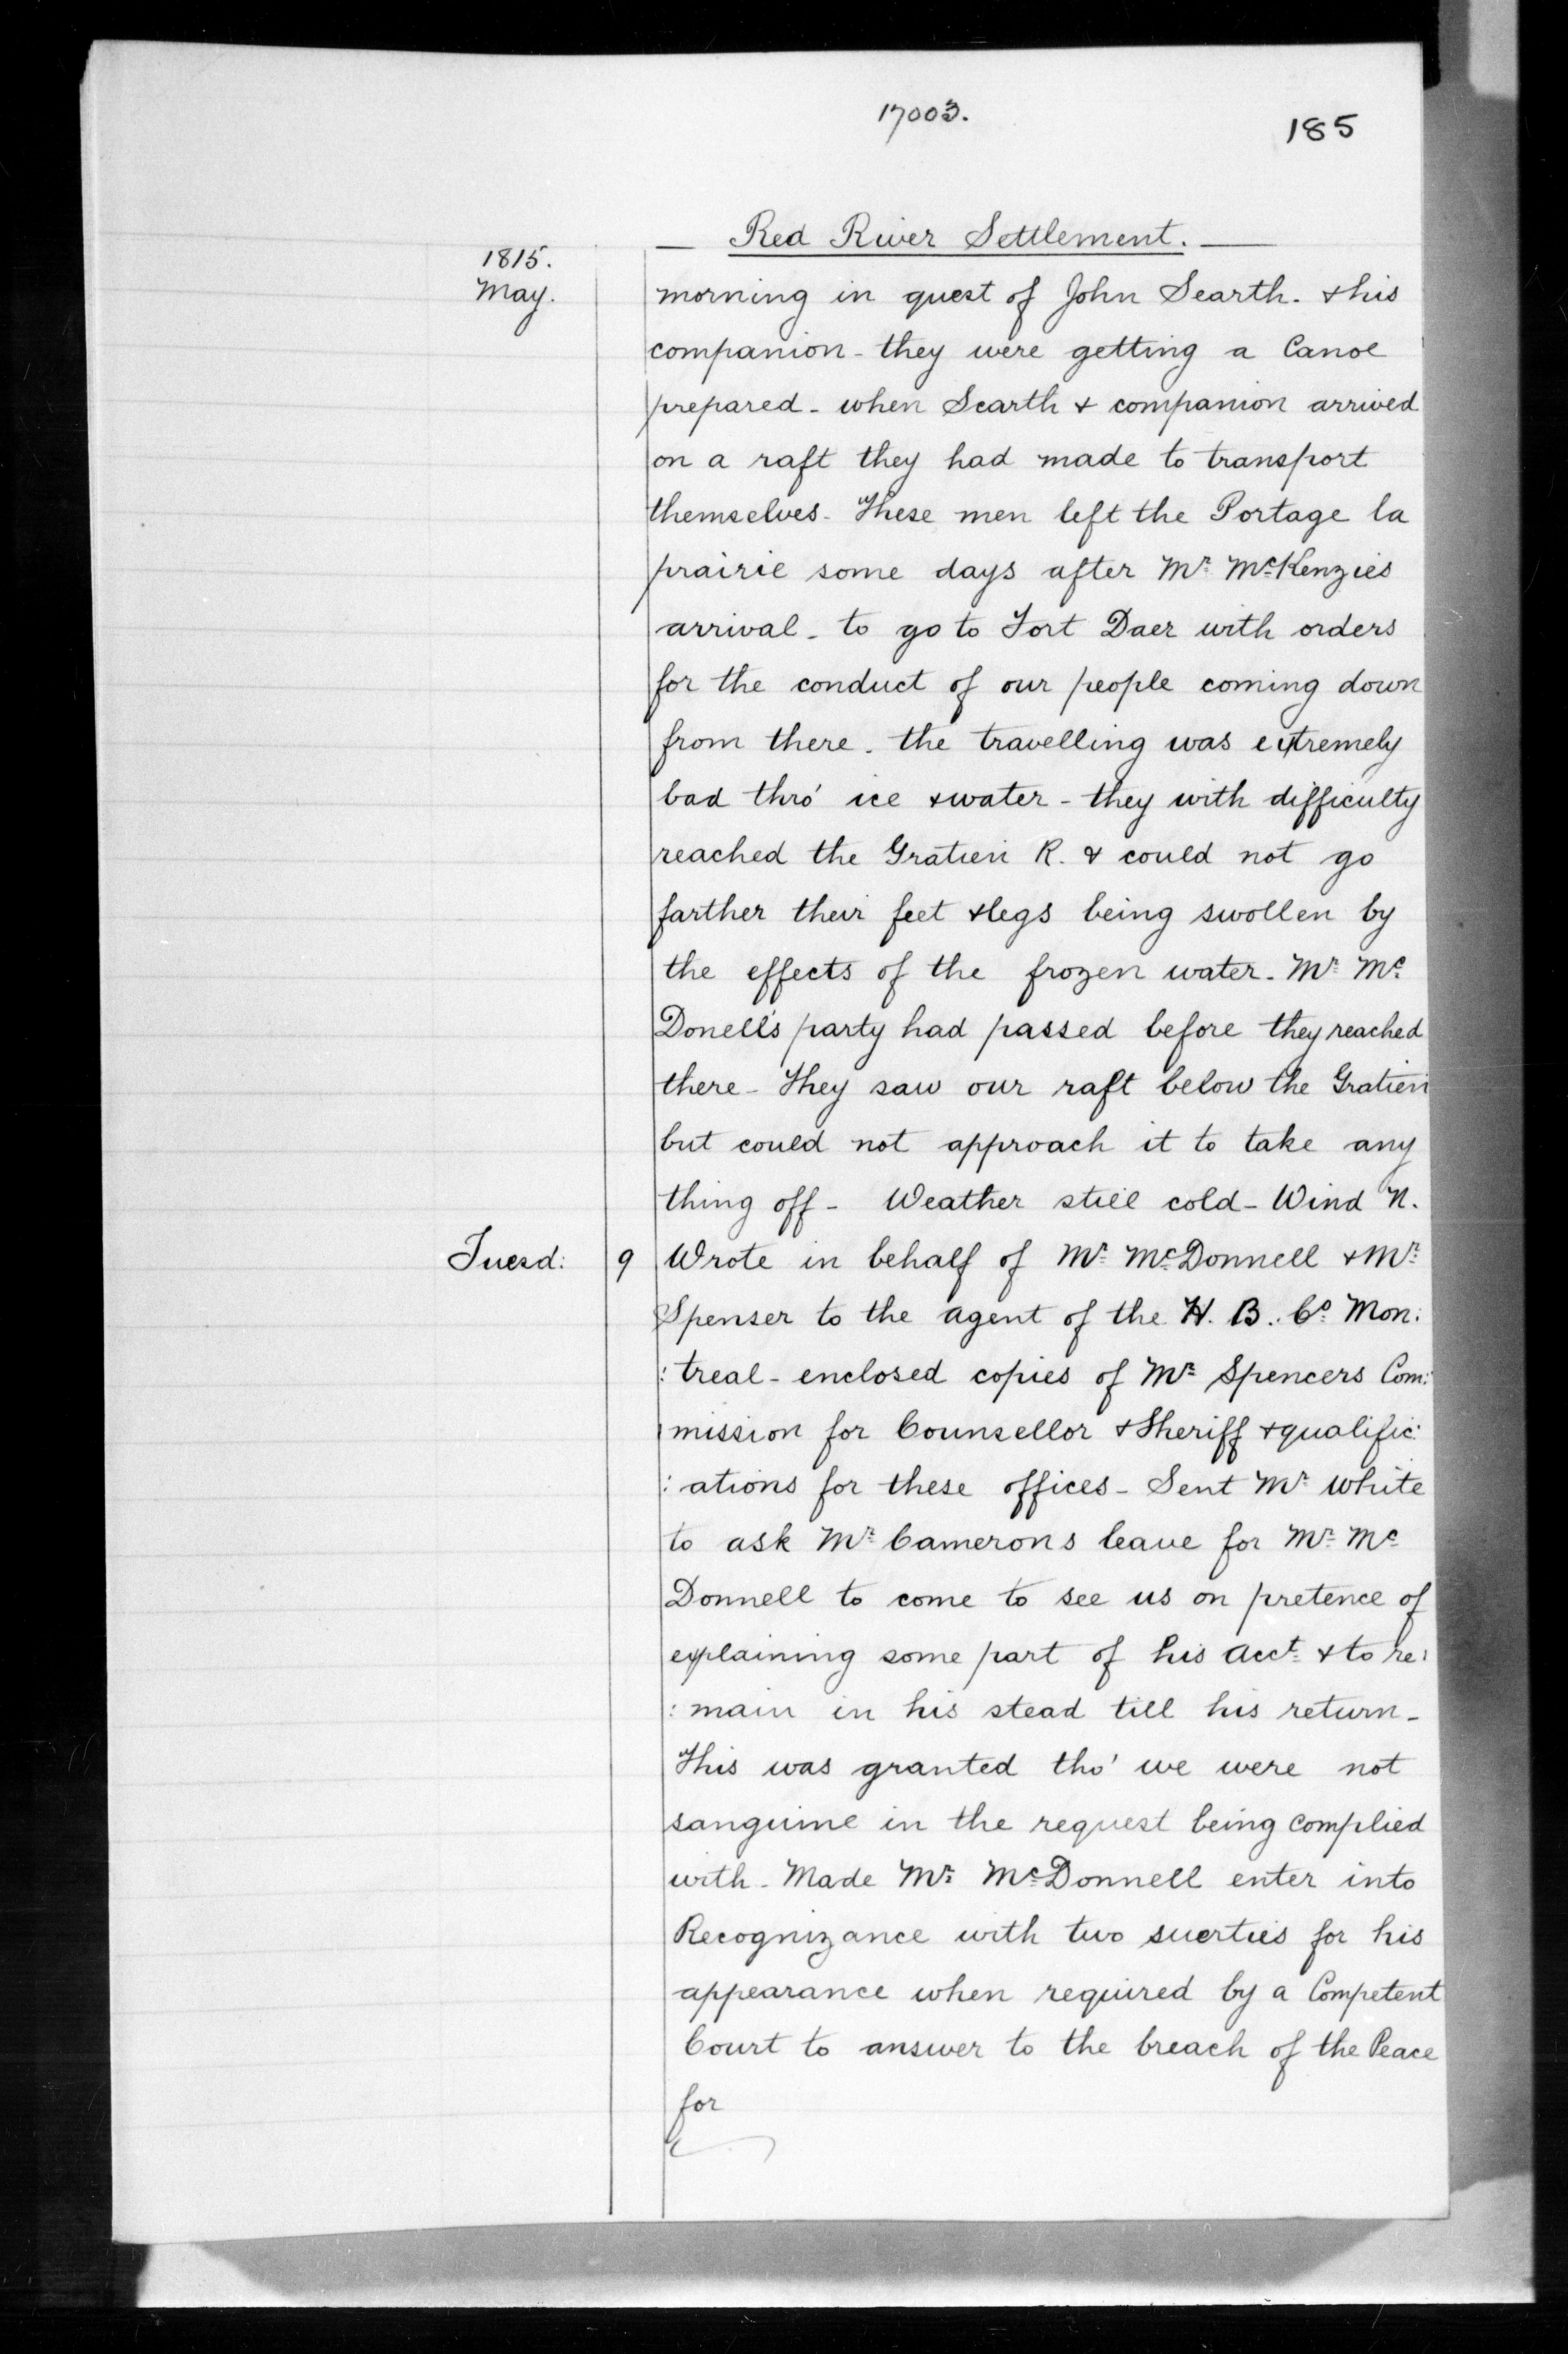 17003.
185
Red River Settlement.
1815.
May.
morning in quest of John Searth. & his
companion - they were getting a Canoe
prepared - when Scarth & companion arrived
on a raft they had made to transport
themselves - These men left the Portage la
prairie some days after Mr. McKenzies
arrival - to go to Fort Daer with orders
for the conduct of our people coming down
from there. the travelling was extremely
bad thro' ice & water - they with difficulty
reached the Gratien R. & could not go
farther their feet & legs being swollen by
the effects of the frozen water - Mr. Mc
Donell's party had passed before they reached
there - They saw our raft below the Gratien
but could not approach it to take any
thing off - Weather still cold - Wind N.
Tuesd: 9 Wrote in behalf of Mr. McDonnell & Mr.
Spenser to the agent of the H. B. Co. Mon:
:treal - enclosed copies of Mr. Spencers Com:
mission for Counsellor & Sheriff & qualific:
:ations for these offices - Sent Mr. White
to ask Mr. Camerons leave for Mr. Mc
Donnell to come to see us on pretence of
explaining some part of his acct. & to re:
:main in his stead till his return -
This was granted tho' we were not
sanguine in the request being complied
with - Made Mr. McDonnell enter into
Recognizance with two suerties for his
appearance when required by a Competent
Court to answer to the breach of the Peace
for